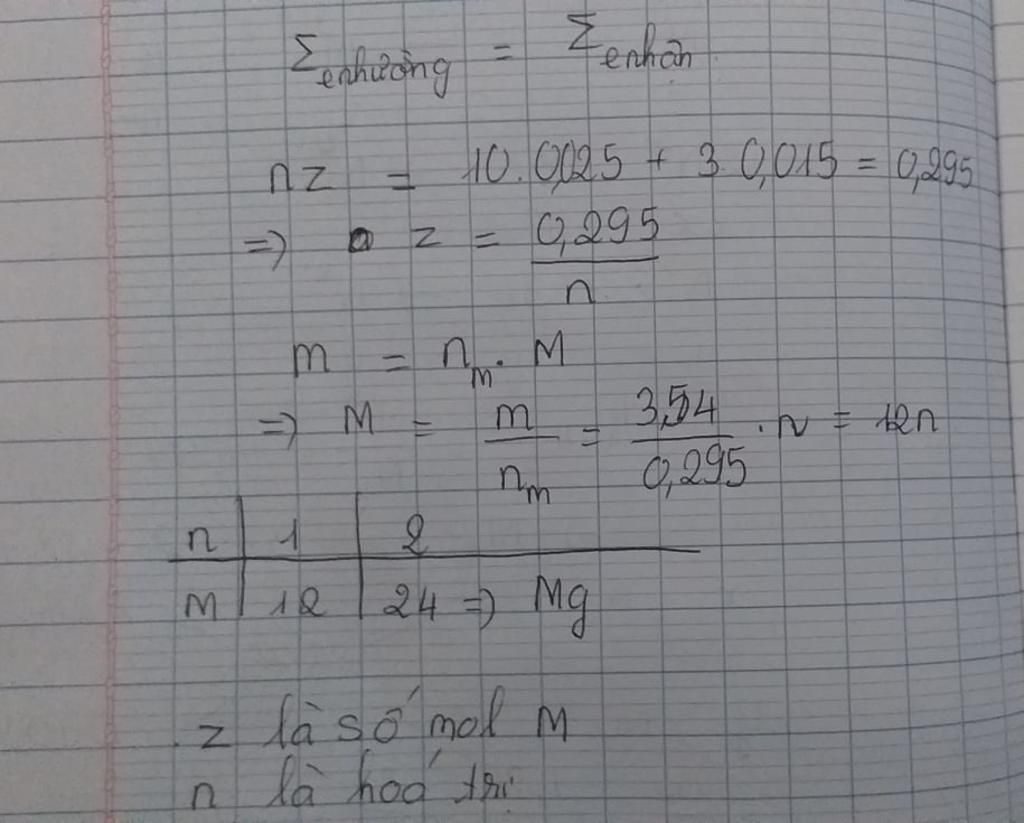 Σe nhường = Σe nhận
nz = 10.0,025 + 3.0,015 = 0,295
=> z = 0,295/n
m = nm. M
=> M = m/nm = 3,54/0,295 . n = 12n
n | 1 | 2
M | 12 | 24 => Mg
z là số mol M
n là hoá trị